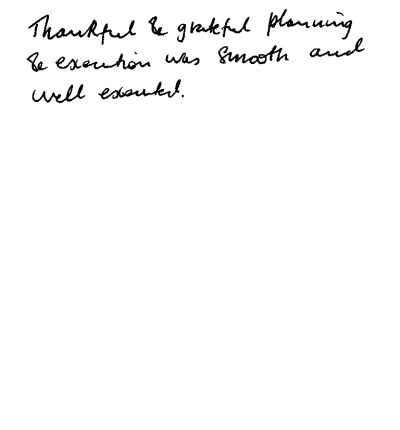 Thankful & grateful planning
& execution was smooth and
well executed.